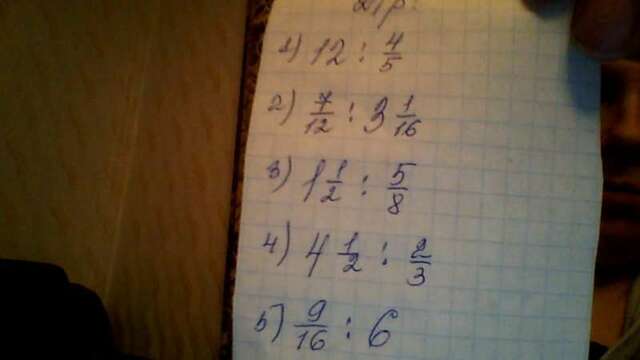 1) 12 : 4/5
2) 7/12 : 3 1/16
3) 1 1/2 : 5/8
4) 4 1/2 : 2/3
5) 9/16 : 6